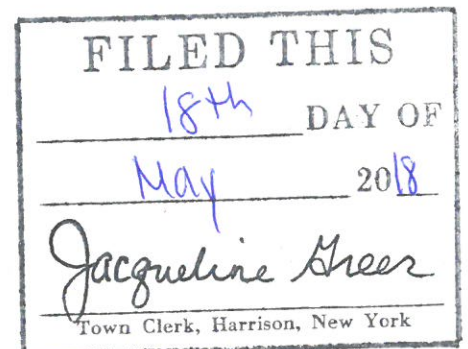 FILED THIS
18th DAY OF
May 2018
Jacqueline Greer
Town Clerk, Harrison, New York